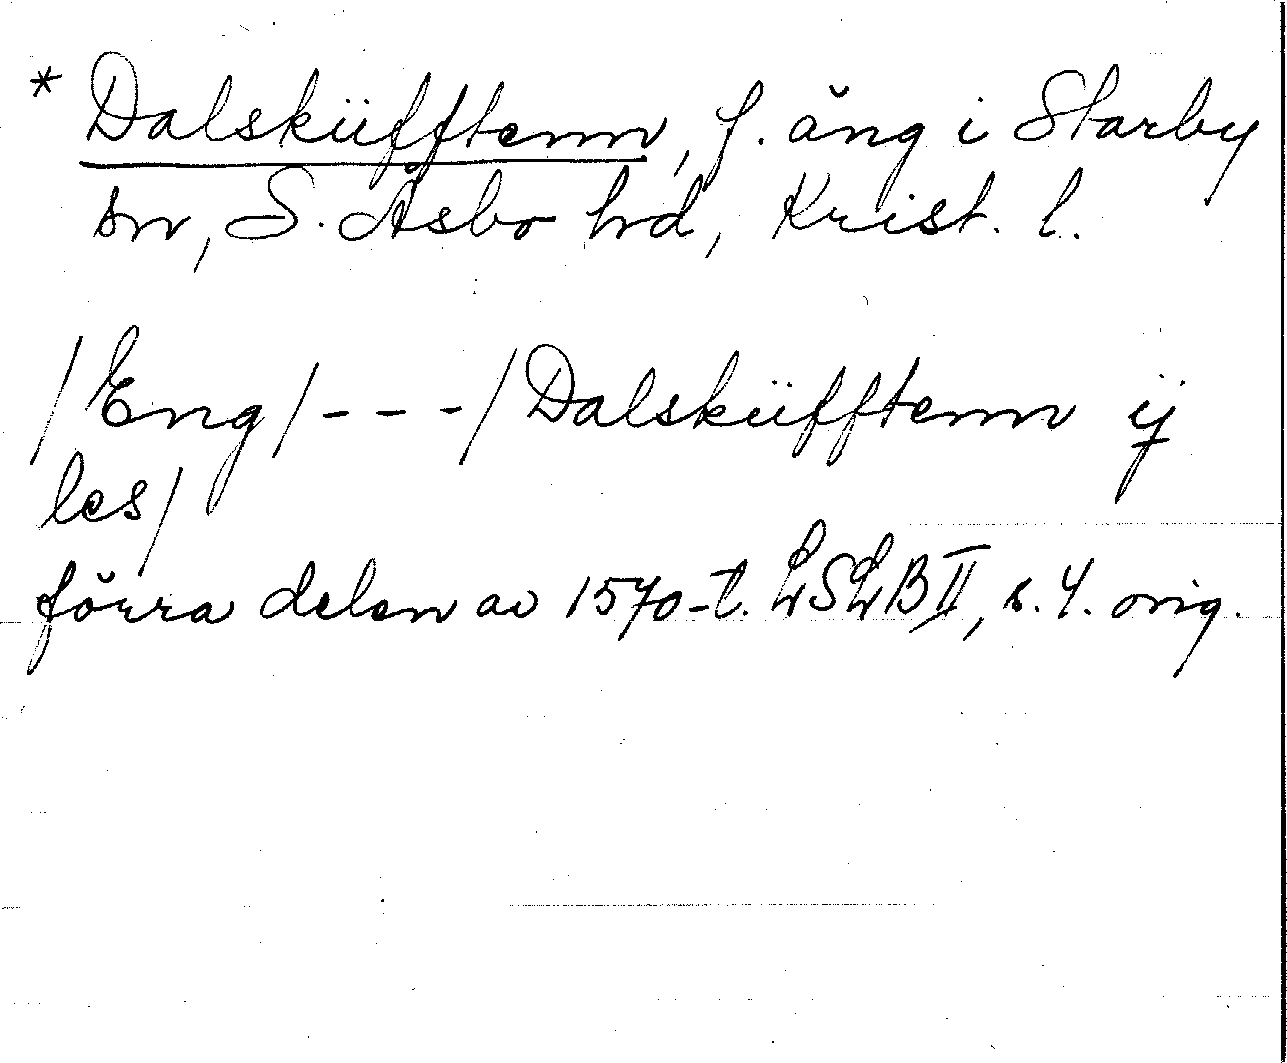 * Dalsküfftenn, f. äng i Starby
sn, S. Åsbo hd, Krist. l.
/Eng/---/Dalsküfftenn ij
les/
förra delen av 1570-t. LSLB II, s. 4. orig.